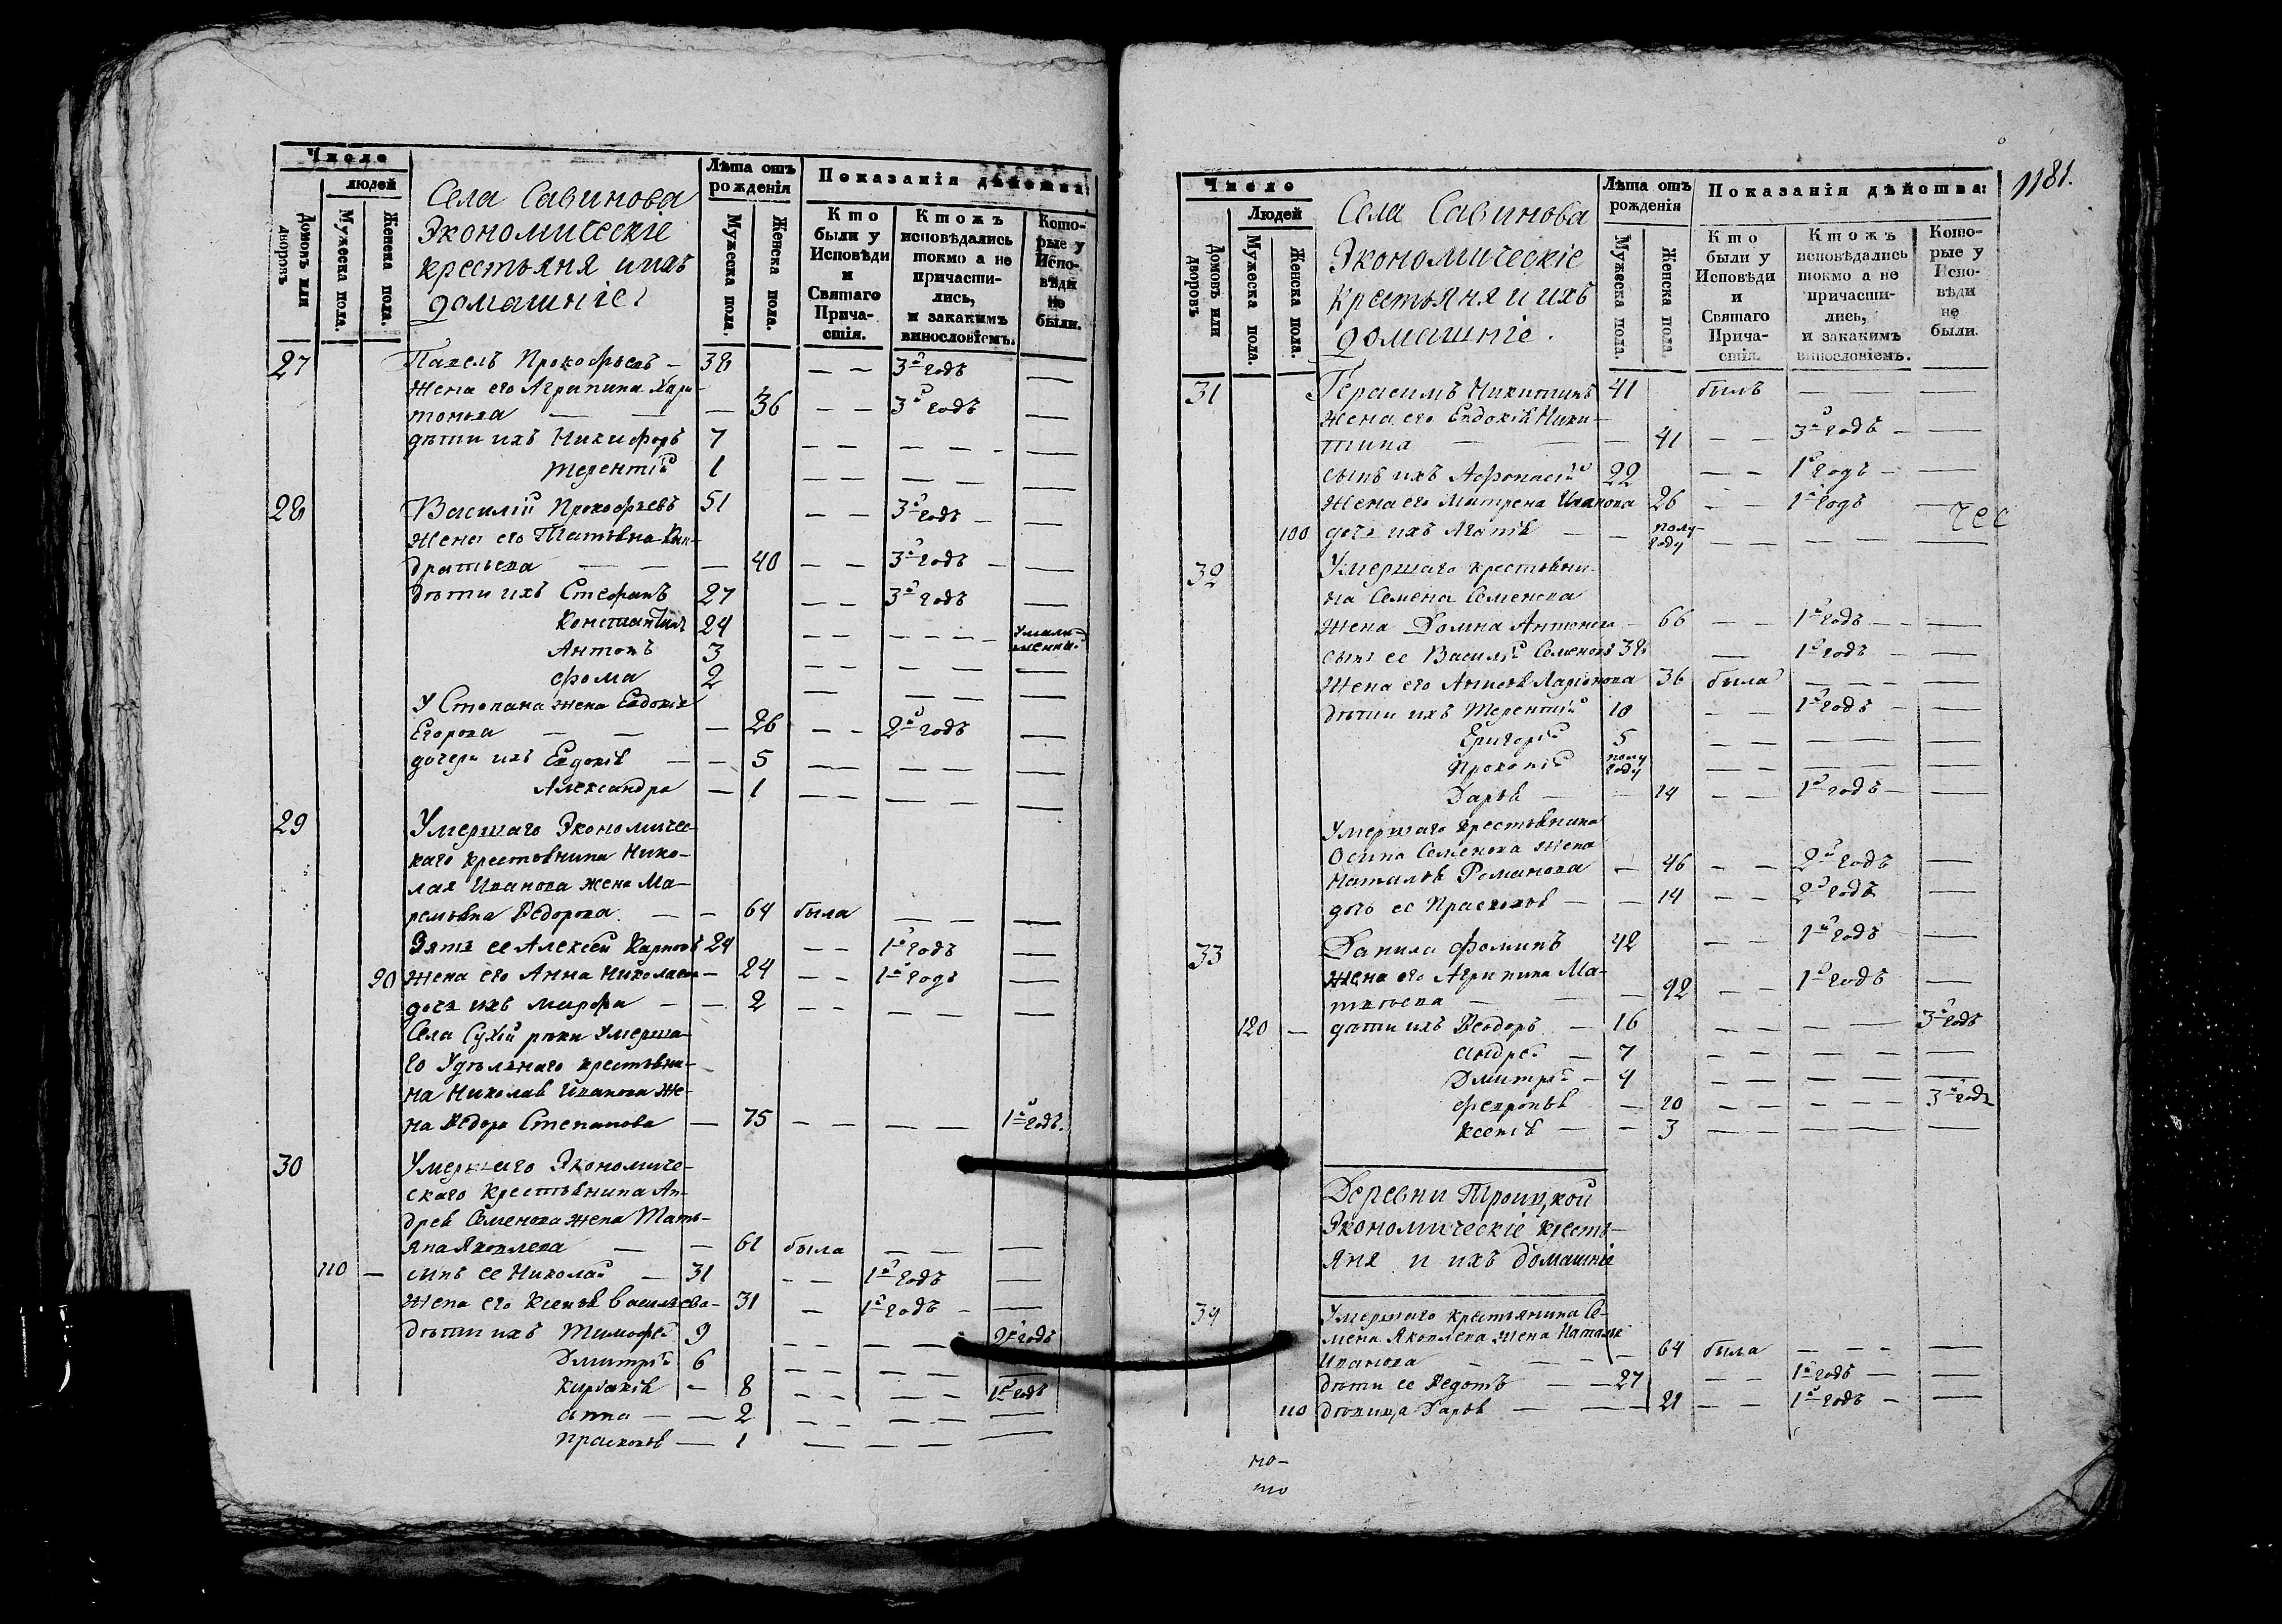 Число
людей
Домовъ или дворовъ
Мужеска пола.
Женска пола.
Села Савинова
Экономическіе
крестьяня и ихъ
домашніе
Лѣта отъ рожденія
Мужеска пола.
Женска пола.
Показанія дѣйства:
Кто были у Исповѣди и Святаго Прича-стія.
Ктожъ исповѣдались токмо а не причасти-лись, и закакимъ винословіемъ.
Кото-рые у Испо-вѣди не были.
27 Павелъ Прокофьевъ — 38 — — 3й годъ —
жена его Агрипина Хари-
тонова — — — 36 — — 3й годъ —
дѣти ихъ Никифоръ 7 — — — — - —
Терентій 1 — — — — —
28 Василій Прокофьевъ 51 — — 3й годъ — —
жена его Татьяна Кон-
дратьева — — — 40 — — 3й годъ — —
дѣти ихъ Стефанъ 27 — — 3й годъ —
Константинъ 24 — — — — — —
Антонъ 3 — — — — — —
Фома 2 — — — —
У Степана жена Евдокія
Егорова — — — 26 — — 2й годъ —
дочери ихъ Евдокія — — 5 — — — — —
Александра — 1 — — — — —
29 Умершаго Экономичес-
каго крестьянина Нико-
лая Иванова жена Ма-
ремьяна Ѳедорова — — 64 была — — —
Зять ее Алексей Карповъ 24 — — 1й годъ —
90 жена его Анна Николаева — 24 — — 1й годъ —
дочь ихъ Марфа — — 2 — — — — —
Села Сухой реки умерша-
го Удѣльнаго крестьяни-
на Николая Иванова же-
на Ѳедора Степанова — 75 — — — — 1й годъ.
30 Умершаго Экономиче-
скаго крестьянина Ан-
дрея Семенова жена Тать-
яна Яковлева — — 61 была — — —
110 — сынъ ее Николай — 31 — — 1й годъ —
жена его Ксенья Васильева — 31 — 1й годъ — —
дѣти ихъ Тимофей 9 — — — — 2й годъ
Дмитрій 6 — — — — —
Киріакія — 8 — — — — 1й годъ
Анна — — 2 — — — — —
Прасковья — 1 — — — —
1181.
Число
Людей
Домовъ или дворовъ
Мужеска пола.
Женска пола.
Села Савинова
Экономическіе
крестьяня и ихъ
домашніе.
Лѣта отъ рожденія
Мужеска пола.
Женска пола.
Показанія дѣйства:
Кто были у Исповѣди и Святаго Прича-стія.
Ктожъ исповѣдались токмо а не причасти-лись, и закакимъ винословіемъ.
Кото-рые у Испо-вѣди не были.
31 Герасимъ Никитинъ 41 былъ — — —
жена его Евдокія Ники-
тина — — — 41 — — 3й годъ — —
сынъ ихъ Афонасій 22 — — 1й годъ — —
жена его Матрена Иванова 26 — — 1й годъ —
100 дочь ихъ Агапія — — полу году — — — — —
чес
32 Умершаго крестьяни-
на Семена Семенова
жена Домна Антонова — 66 — — 1й годъ — — —
сынъ ее Василій Семеновъ 38 — 1й годъ — —
жена его Анисья Ларіонова 36 была — — — —
дѣти ихъ Терентій 10 — — 1й годъ — —
Григорій 5 — — — — —
Прокопій полу году — — — — —
Дарья — — 14 — — 1й годъ — —
Умершаго крестьянина
Осипа Семенова жена
Наталья Романова — 46 — — 2й годъ —
дочь ее Прасковья — — 14 — — 2й годъ —
33 Данила Фоминъ 42 — — 1й годъ —
жена его Агрипина Ма-
твѣева — — — 42 — — 1й годъ —
120 — дѣти ихъ Ѳеодоръ — 16 — — — — 3й годъ
Андрей — 7 — — — — —
Дмитрій — 4 — — — — —
Февронья — 20 — — — — 3й годъ
Ксенія — — 3 — — — — —
Деревни Троицкой
Экономическіе кресть-
яня и ихъ домашніе
34 Умершаго крестьянина Се-
мена Яковлева жена Наталья
Иванова — — — 64 была — — — —
дѣти ее Ѳедотъ — — 27 — — 1й годъ — —
110 дѣвица Дарья — — — 21 — — 1й годъ — —